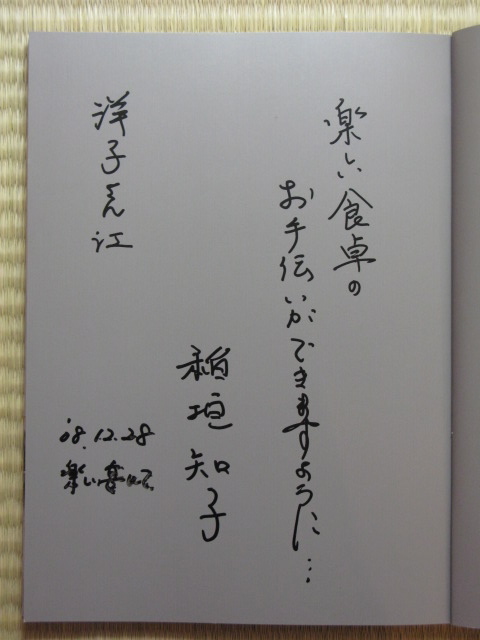 楽しい食卓の
お手伝いができますように…
稲垣知子
洋子さん江
'08.12.28
楽しい
にて